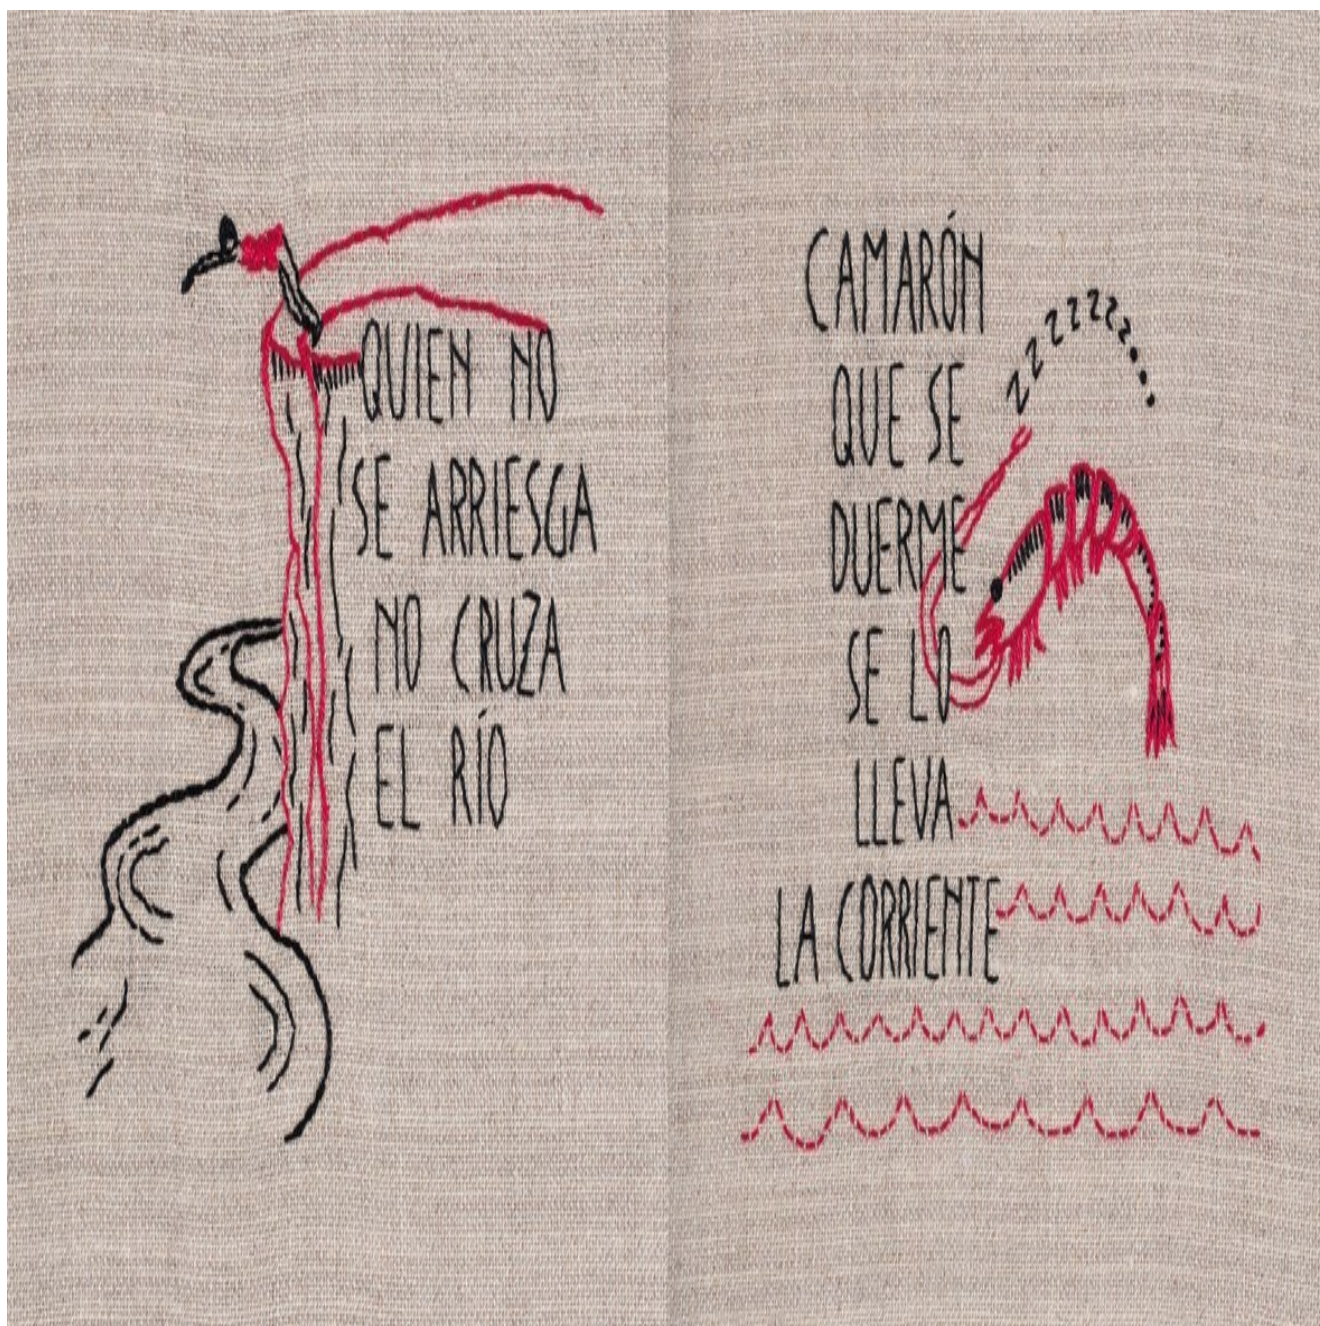 QUIEN NO
SE ARRIESGA
NO CRUZA
EL RÍO
CAMARÓN
QUE SE
DUERME
SE LO
LLEVA
LA CORRIENTE
ZZZZZZZ...